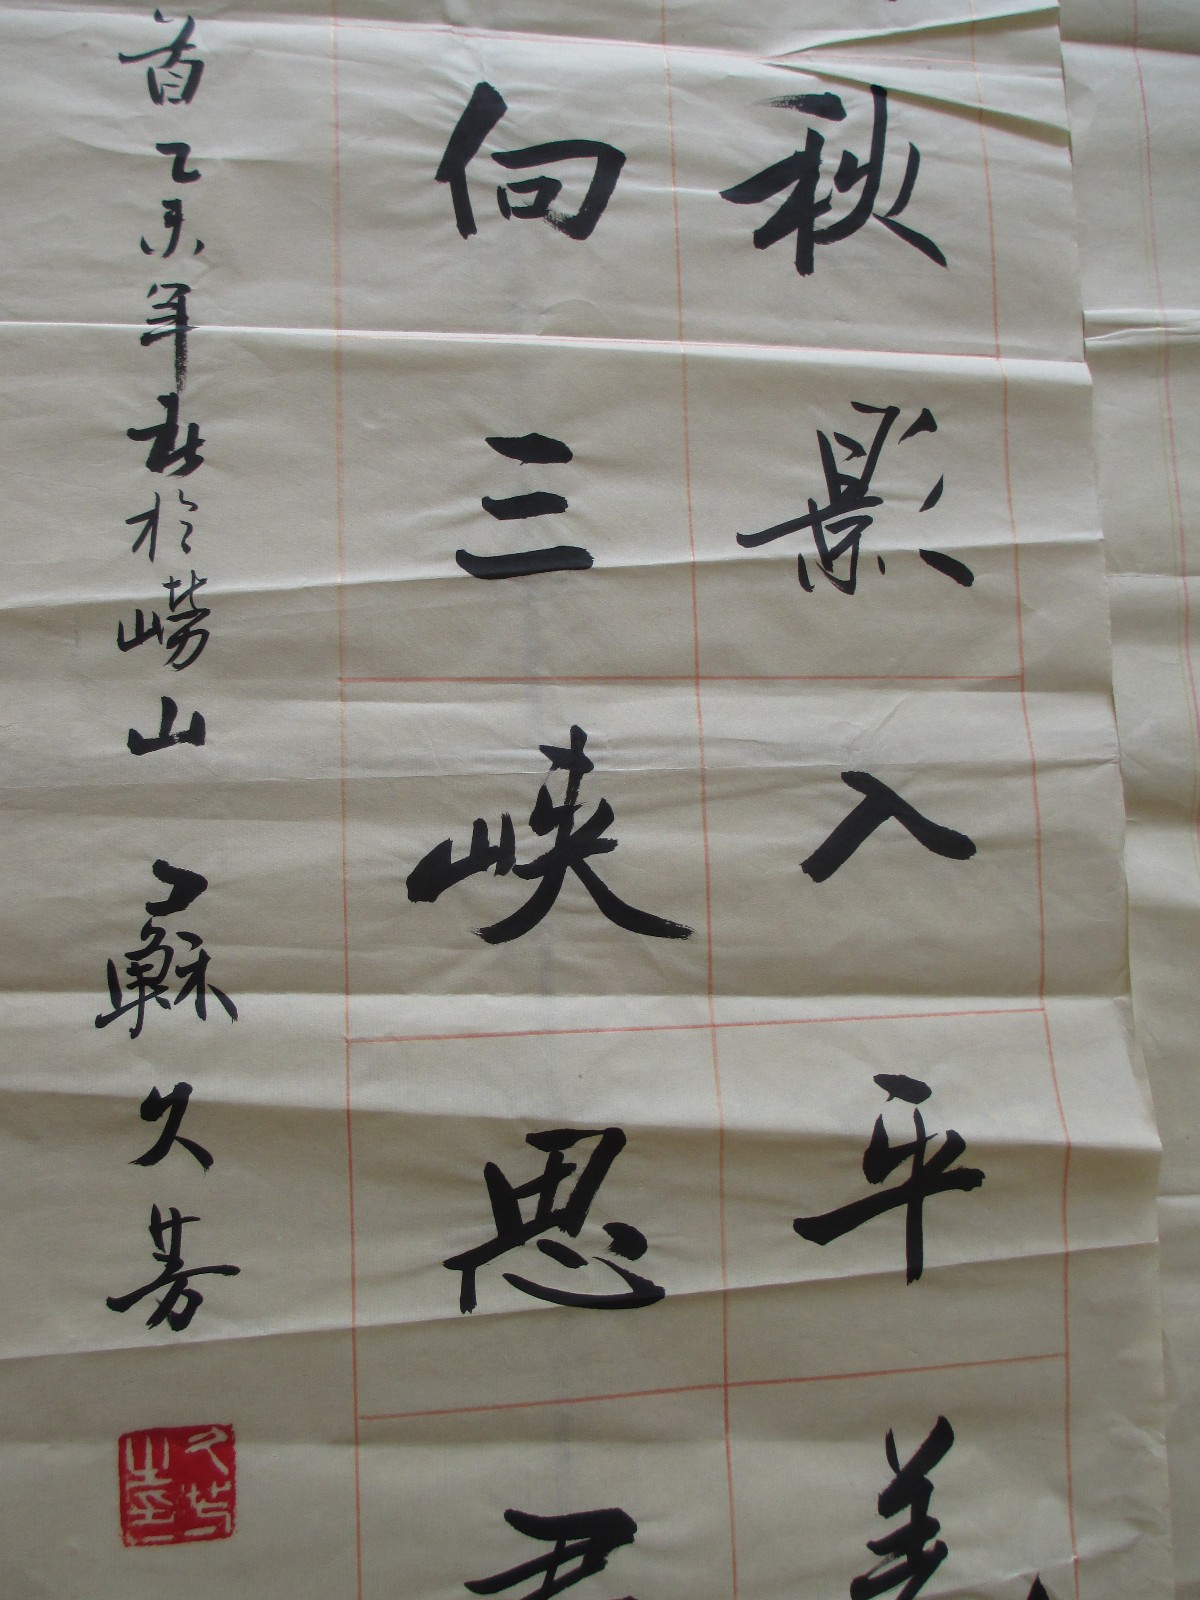 秋影入平羌
向三峡思君
首乙未年於崂山 蘇久芳
久芳之印